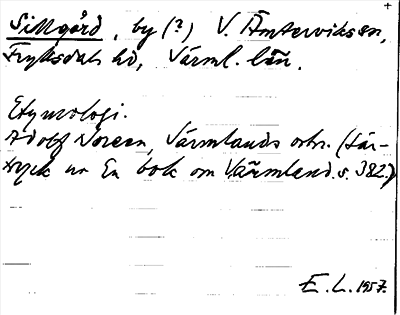 Sillgård, by (?) V. Ämterviks sn,
Fryksdals hd, Värml. län.
Etymologi.
Adolf Noreen, Värmlands ortn. (Sär-
tryck ur En bok om Värmland. s. 382.)
E. L. 1957.